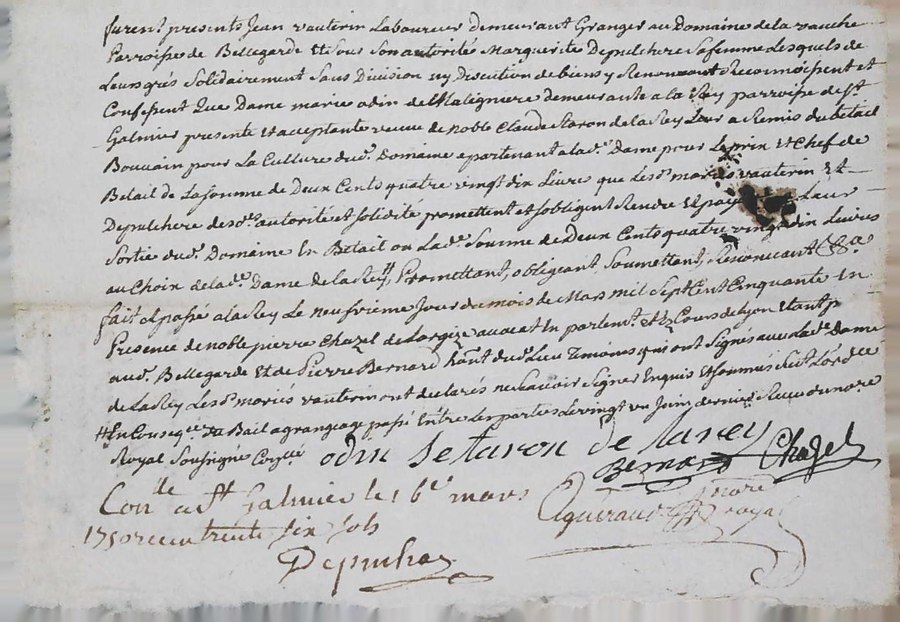 furent presents Jean vauterin Laboureur demeurant Granger au Domaine de la vauche
Parroisse de Bellegarde Et sous son autorité Marguerite Depulchere sa femme Lesquels de
Leurs grés Solidairement Sans Division ny Discution de biens y Renoncant Reconnoissent et
Confessent Que Dame marie odin de demeurante a la Rey parroisse de St
Galmier presente et acceptante veuve de noble Claude Staron de la Rey Leur a Remis du betail
Bouvain pour La Culture dud. Domaine apartenant a lad. Dame pour Le prix Et Chef de
Betail de La somme de Deux Cents quatre vingt dix Livre que Les d. mariés vauterin Et
Depulchere desd. autorité et solidité promettent et sobligent Rendre Et a Leur
Sortie dud. Domaine En Betail ou Lad. Somme de Deux Cents quatre vingt dix Livres
au Choix de lad. Dame de la Rey # Promettant, obligeant, Soumettant, Renoncant &a
fait et passé a la Rey Le neufvieme Jour du mois de Mars mil Sept Cent Cinquante En
Presence de noble pierre Chazel avocat En parlemt. Et Cours de Lyon Etant
aud. Bellegarde Et de Pierre Bernard hant. dud. Lieu Temoins qui ont Signés avec Lad. Dame
de La Rey Les d. mariés vauterin ont declarés ne Scavoir Signer Enquis Et Sommés
# En Conseqce. du Bail a grangeage passé Entre Les parties Le vingt un Juin dernier Receu du nore.
Royal Soussigné
odin Staron de la rey
Bernard Chazel
Con. lle a St Galmier le 16e mars
1750 receu trente six sols
nore
royal